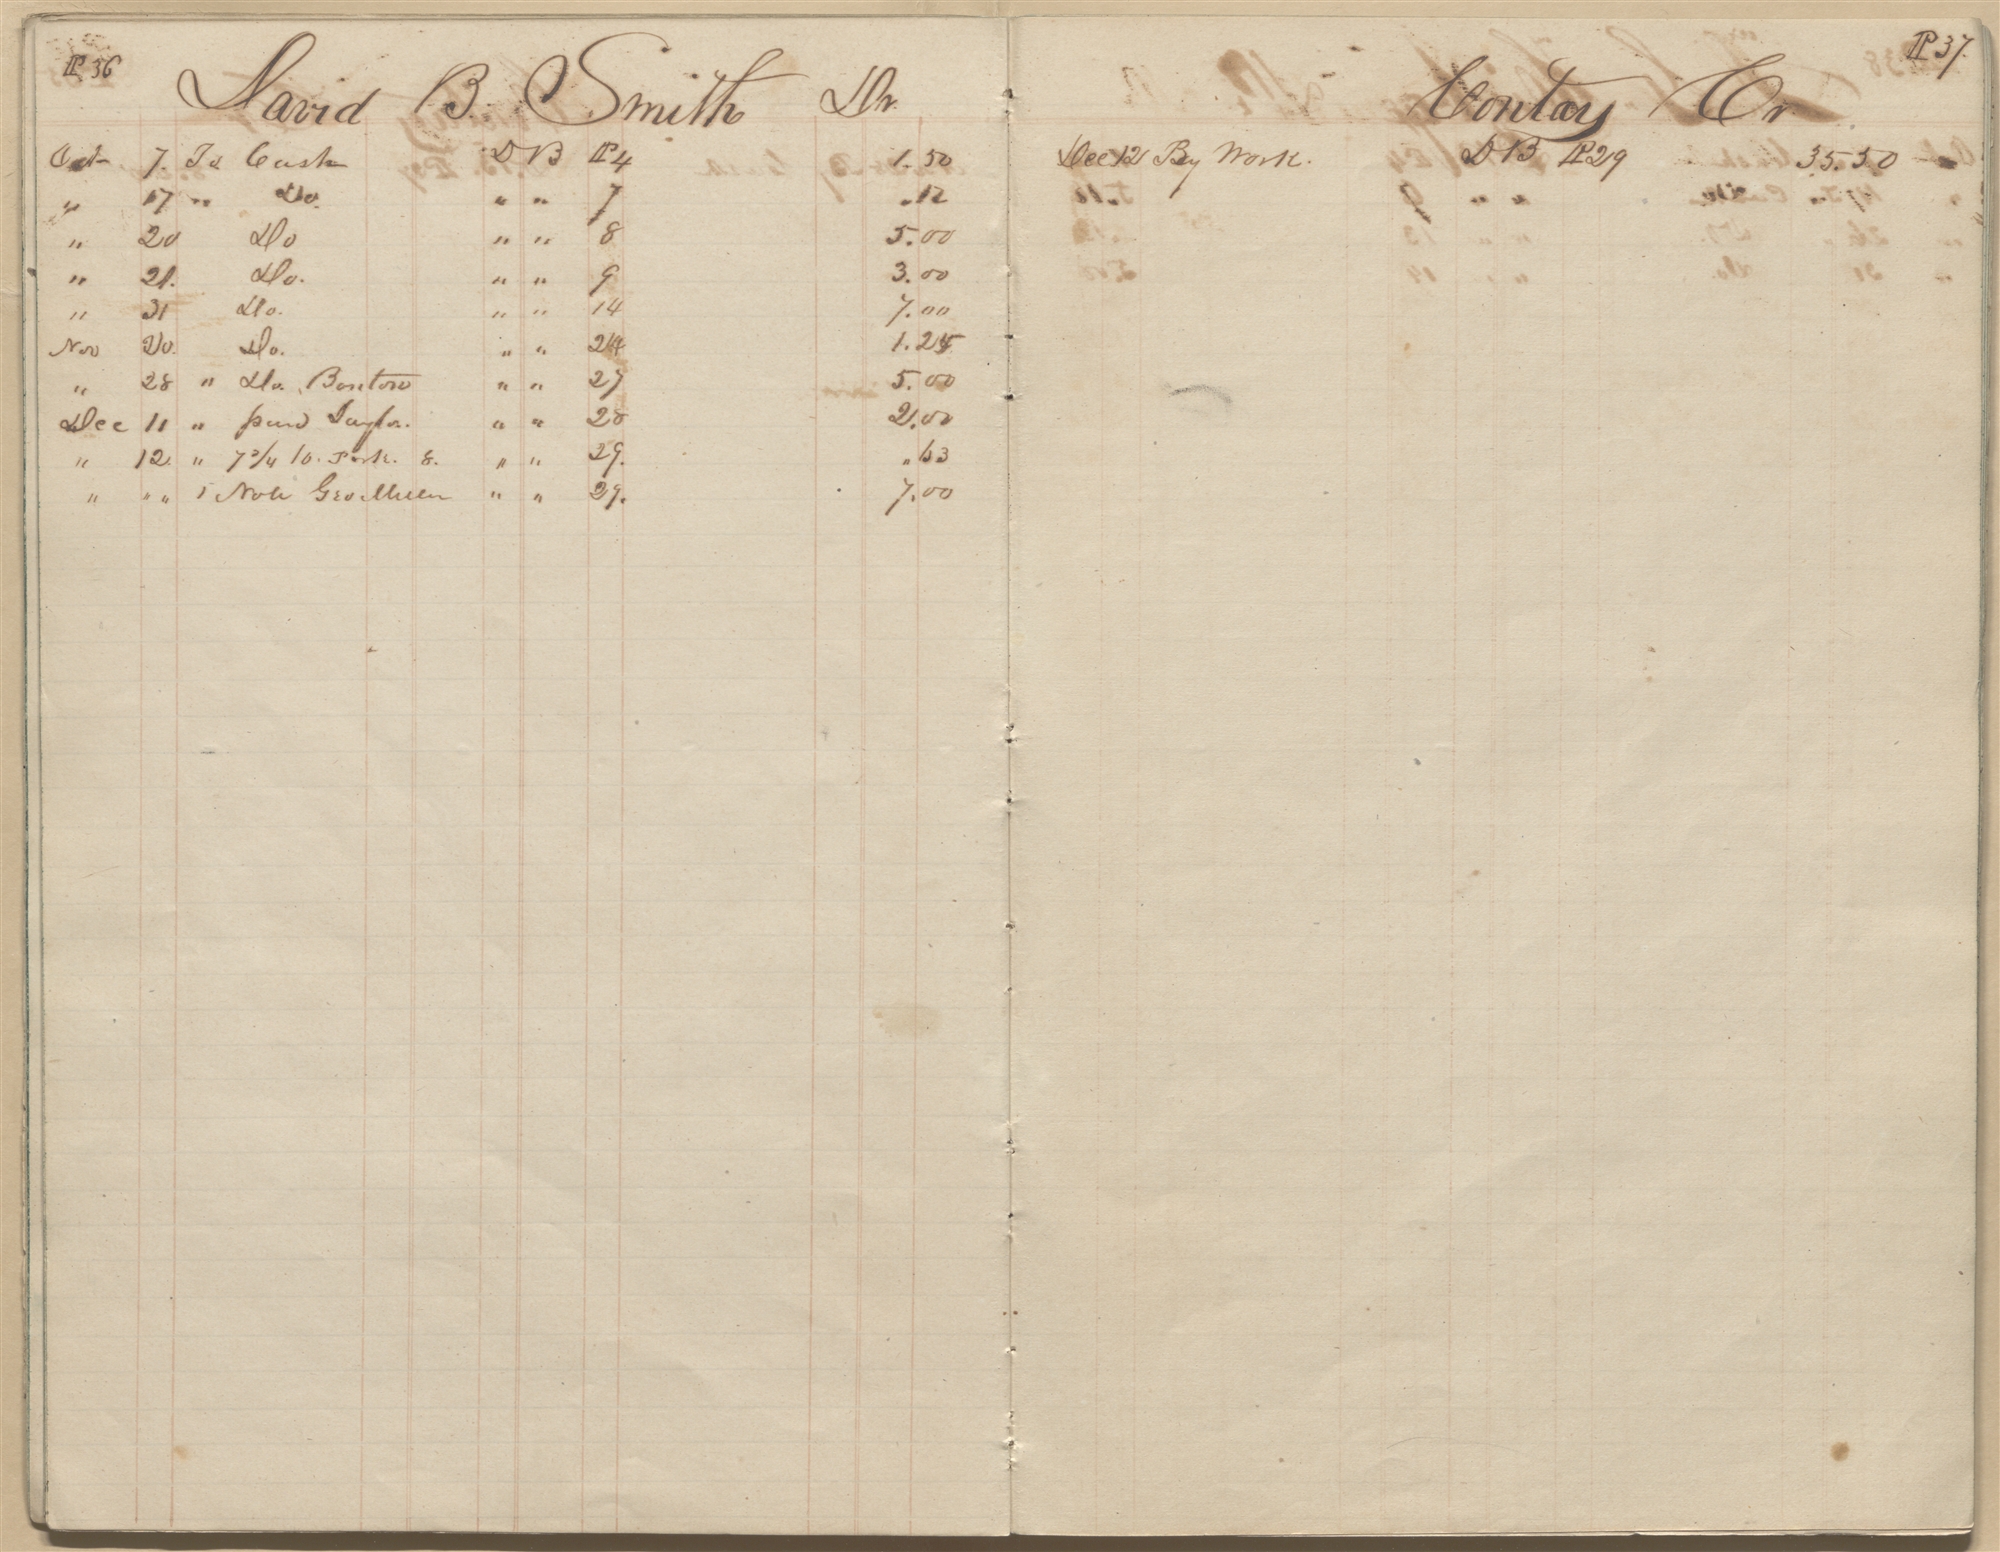 P 36
David B. Smith Dr.
Oct 7. To Cash D B P 4 1.50
" 17 " Do. " " 7 .12
" 20 Do " " 8 5.00
" 21. Do. " " 9 3.00
" 31 Do. " " 14 7.00
Nov 20. Do. " " 24 1.25
" 28 " Do. " " 27 5.00
Dec 11 " Taylor. " " 28 2.00
" 12. " 7 3/4 lb. Pork. 8. " " 29. "63
" " " 1 Note Geo Miller " " 29. 7.00
P 37.
Contay Cr
Dec 12 By Work. D B P 29 35.50